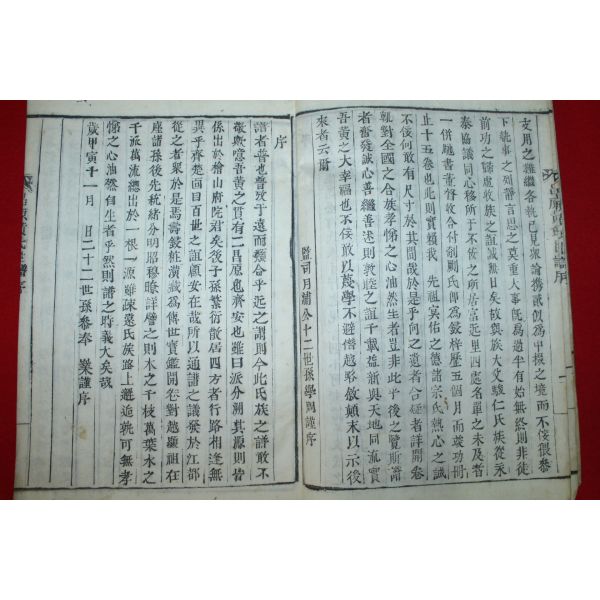 支用之難繼各執己見衆論携貳似爲中撤之境而不侫猥叅
下執事之列靜言思之莫重大事旣爲過半有始無終則非徒
前功之歸虛收族之誼滅無日矣故與族大文駿仁氏族從永
泰協議同心移所于不侫之所居宮近里四處名單之未及者
一併趣書董督收合付剞劂氏卽爲鋟梓歷五個月而竣功冊
止十五卷也此則實賴我 先祖冥佑之德諸宗氏熱心之誠
不侫何敢有尺寸於其間哉於是乎向之遺者合疑者詳開卷
軌對全國之合族孝悌之心油然生者豈非此乎後之覽斯譜
者奮發誠心善繼善述則敦睦之誼千載益新與天地同流實
吾黃之大幸福也不侫以蔑學不避僭越畧敘顚末以示後
來者云爾
監司月浦公十二世孫學 謹序
序
譜者普也普攷于遠而募合乎近之謂則今此氏族之譜敢不
敬歟噫吾黃之貫有二昌原也齊安也雖曰派分溯其源則皆
係出於檜山府院君矣後子孫繁衍散居四方者行路相逢無
異乎齊楚面目百世之誼顧安在哉所以通譜之議發於江都
從之者衆於是焉壽鋟粧潢藏爲傳世寶鑑開卷對越顯祖在
座諸孫後先統緖分明昭穆瞭詳譬之則木之千枝萬葉水之
千派萬流總出於一根一源雖疎遠氏族路上邂逅孰可無孝
悌之心油然自生者乎然則譜之時義大矣哉
歲甲寅十一月 日二十二世孫叅奉 業謹序